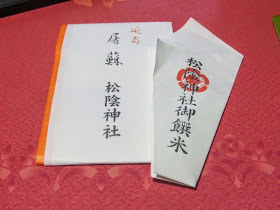 延寿
屠蘇
松陰神社
松陰神社御饌米